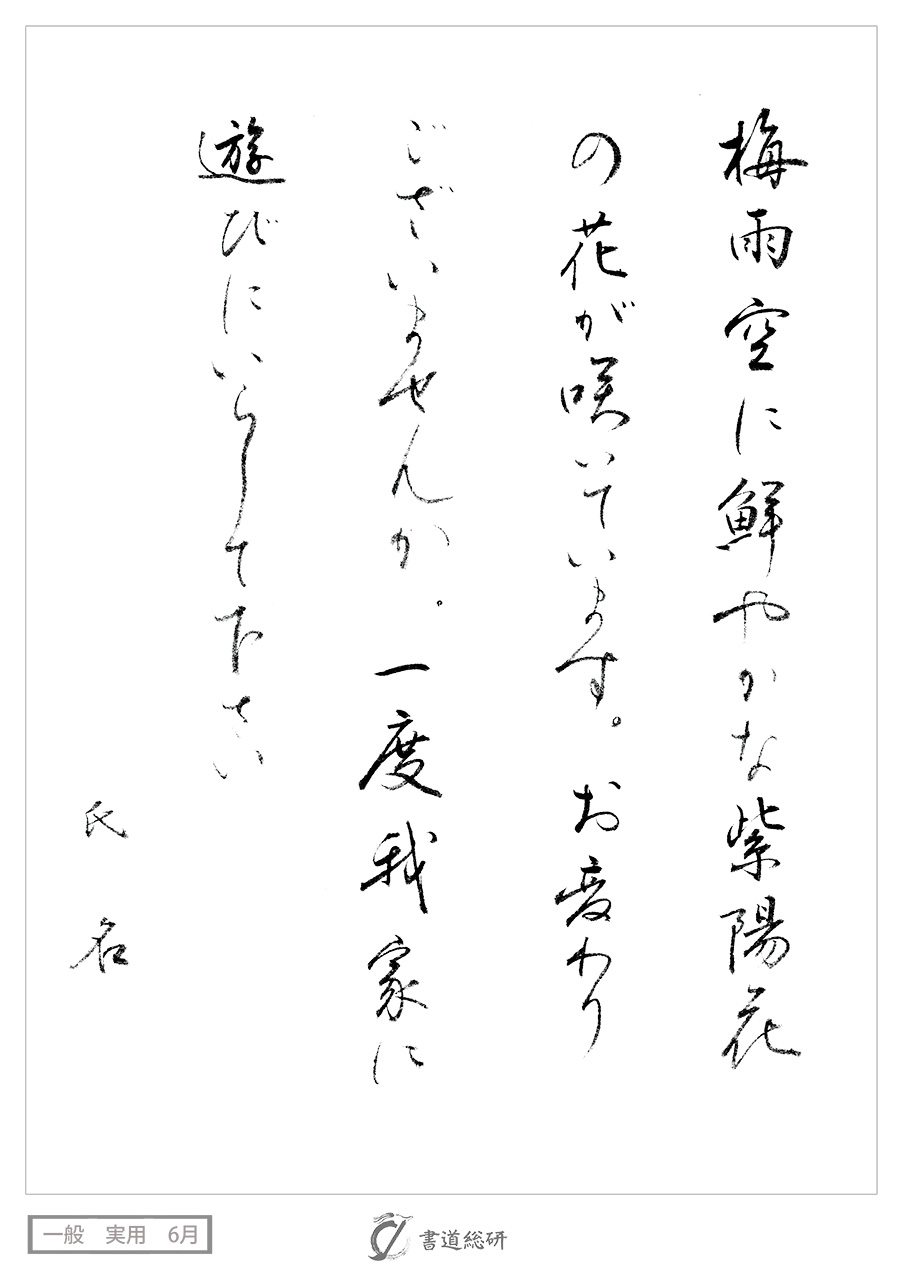 梅雨空に鮮やかな紫陽花
の花が咲いています。お変わり
ございませんか。一度我家に
遊びにいらして下さい
氏名
一般 実用 6月
書道総研